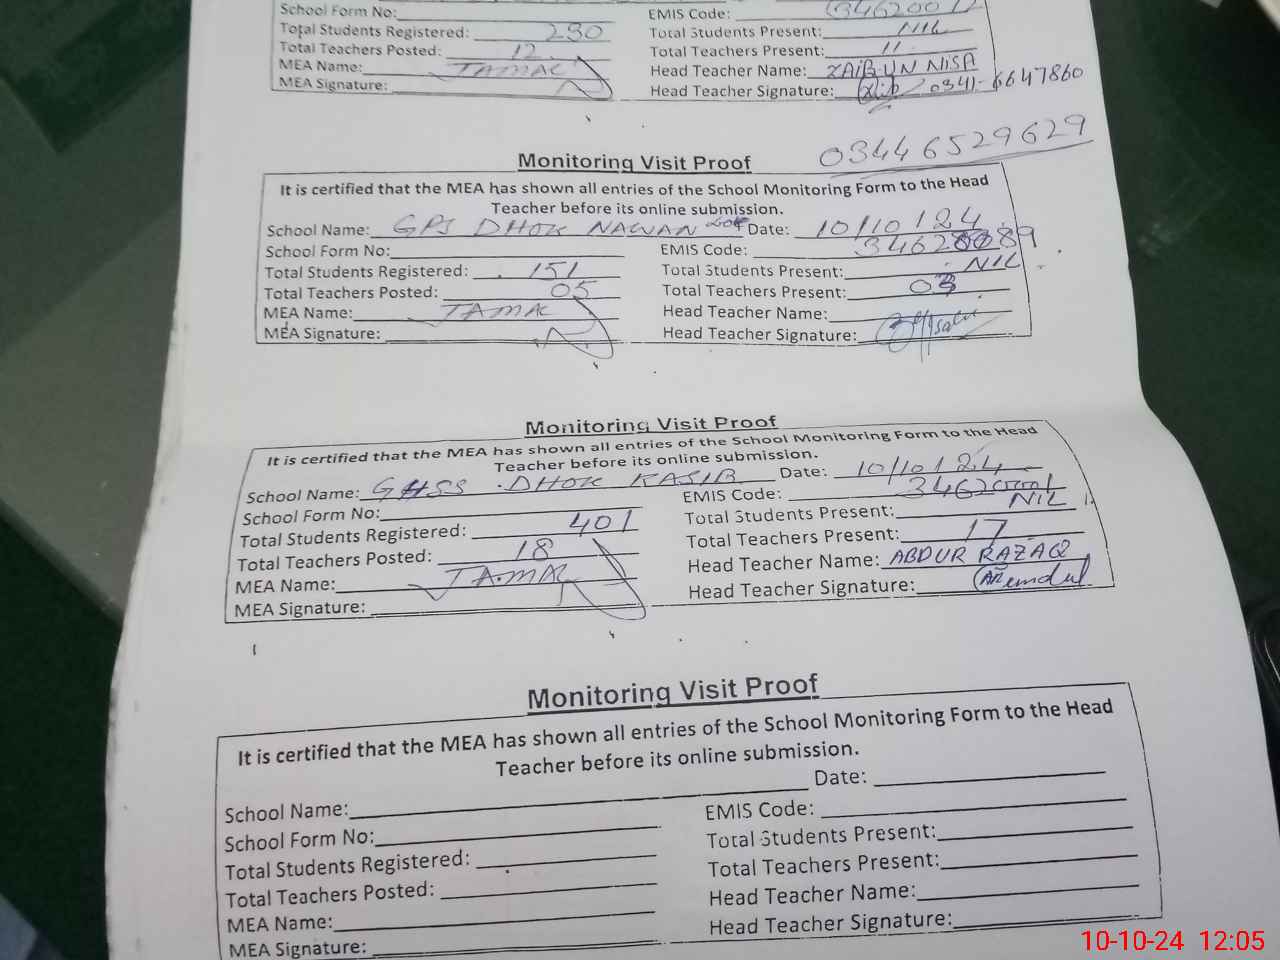 School Form No: EMIS Code:
Total Students Registered: 290 Total Students Present: NIL
Total Teachers Posted: 12 Total Teachers Present: 11
MEA Name: JAMAL Head Teacher Name: ZAIBUN NISA
MEA Signature: Head Teacher Signature: 0341-6647860
03446529629
Monitoring Visit Proof
It is certified that the MEA has shown all entries of the School Monitoring Form to the Head
Teacher before its online submission.
School Name: GPS DHOK NAWAN Date: 10/10/24
School Form No: EMIS Code:
Total Students Registered: 151 Total Students Present: NIL
Total Teachers Posted: 05 Total Teachers Present: 03
MEA Name: JAMAL Head Teacher Name:
MEA Signature: Head Teacher Signature:
Monitoring Visit Proof
It is certified that the MEA has shown all entries of the School Monitoring Form to the Head
Teacher before its online submission.
School Name: GHSS DHOK KASIB Date: 10/10/24
School Form No: EMIS Code: 34620001
Total Students Registered: 401 Total Students Present: NIL
Total Teachers Posted: 18 Total Teachers Present: 17
MEA Name: JAMAL Head Teacher Name: ABDUR RAZAQ
MEA Signature: Head Teacher Signature:
Monitoring Visit Proof
It is certified that the MEA has shown all entries of the School Monitoring Form to the Head
Teacher before its online submission.
School Name: Date:
School Form No: EMIS Code:
Total Students Registered: Total Students Present:
Total Teachers Posted: Total Teachers Present:
MEA Name: Head Teacher Name:
MEA Signature: Head Teacher Signature:
10-10-24 12:05